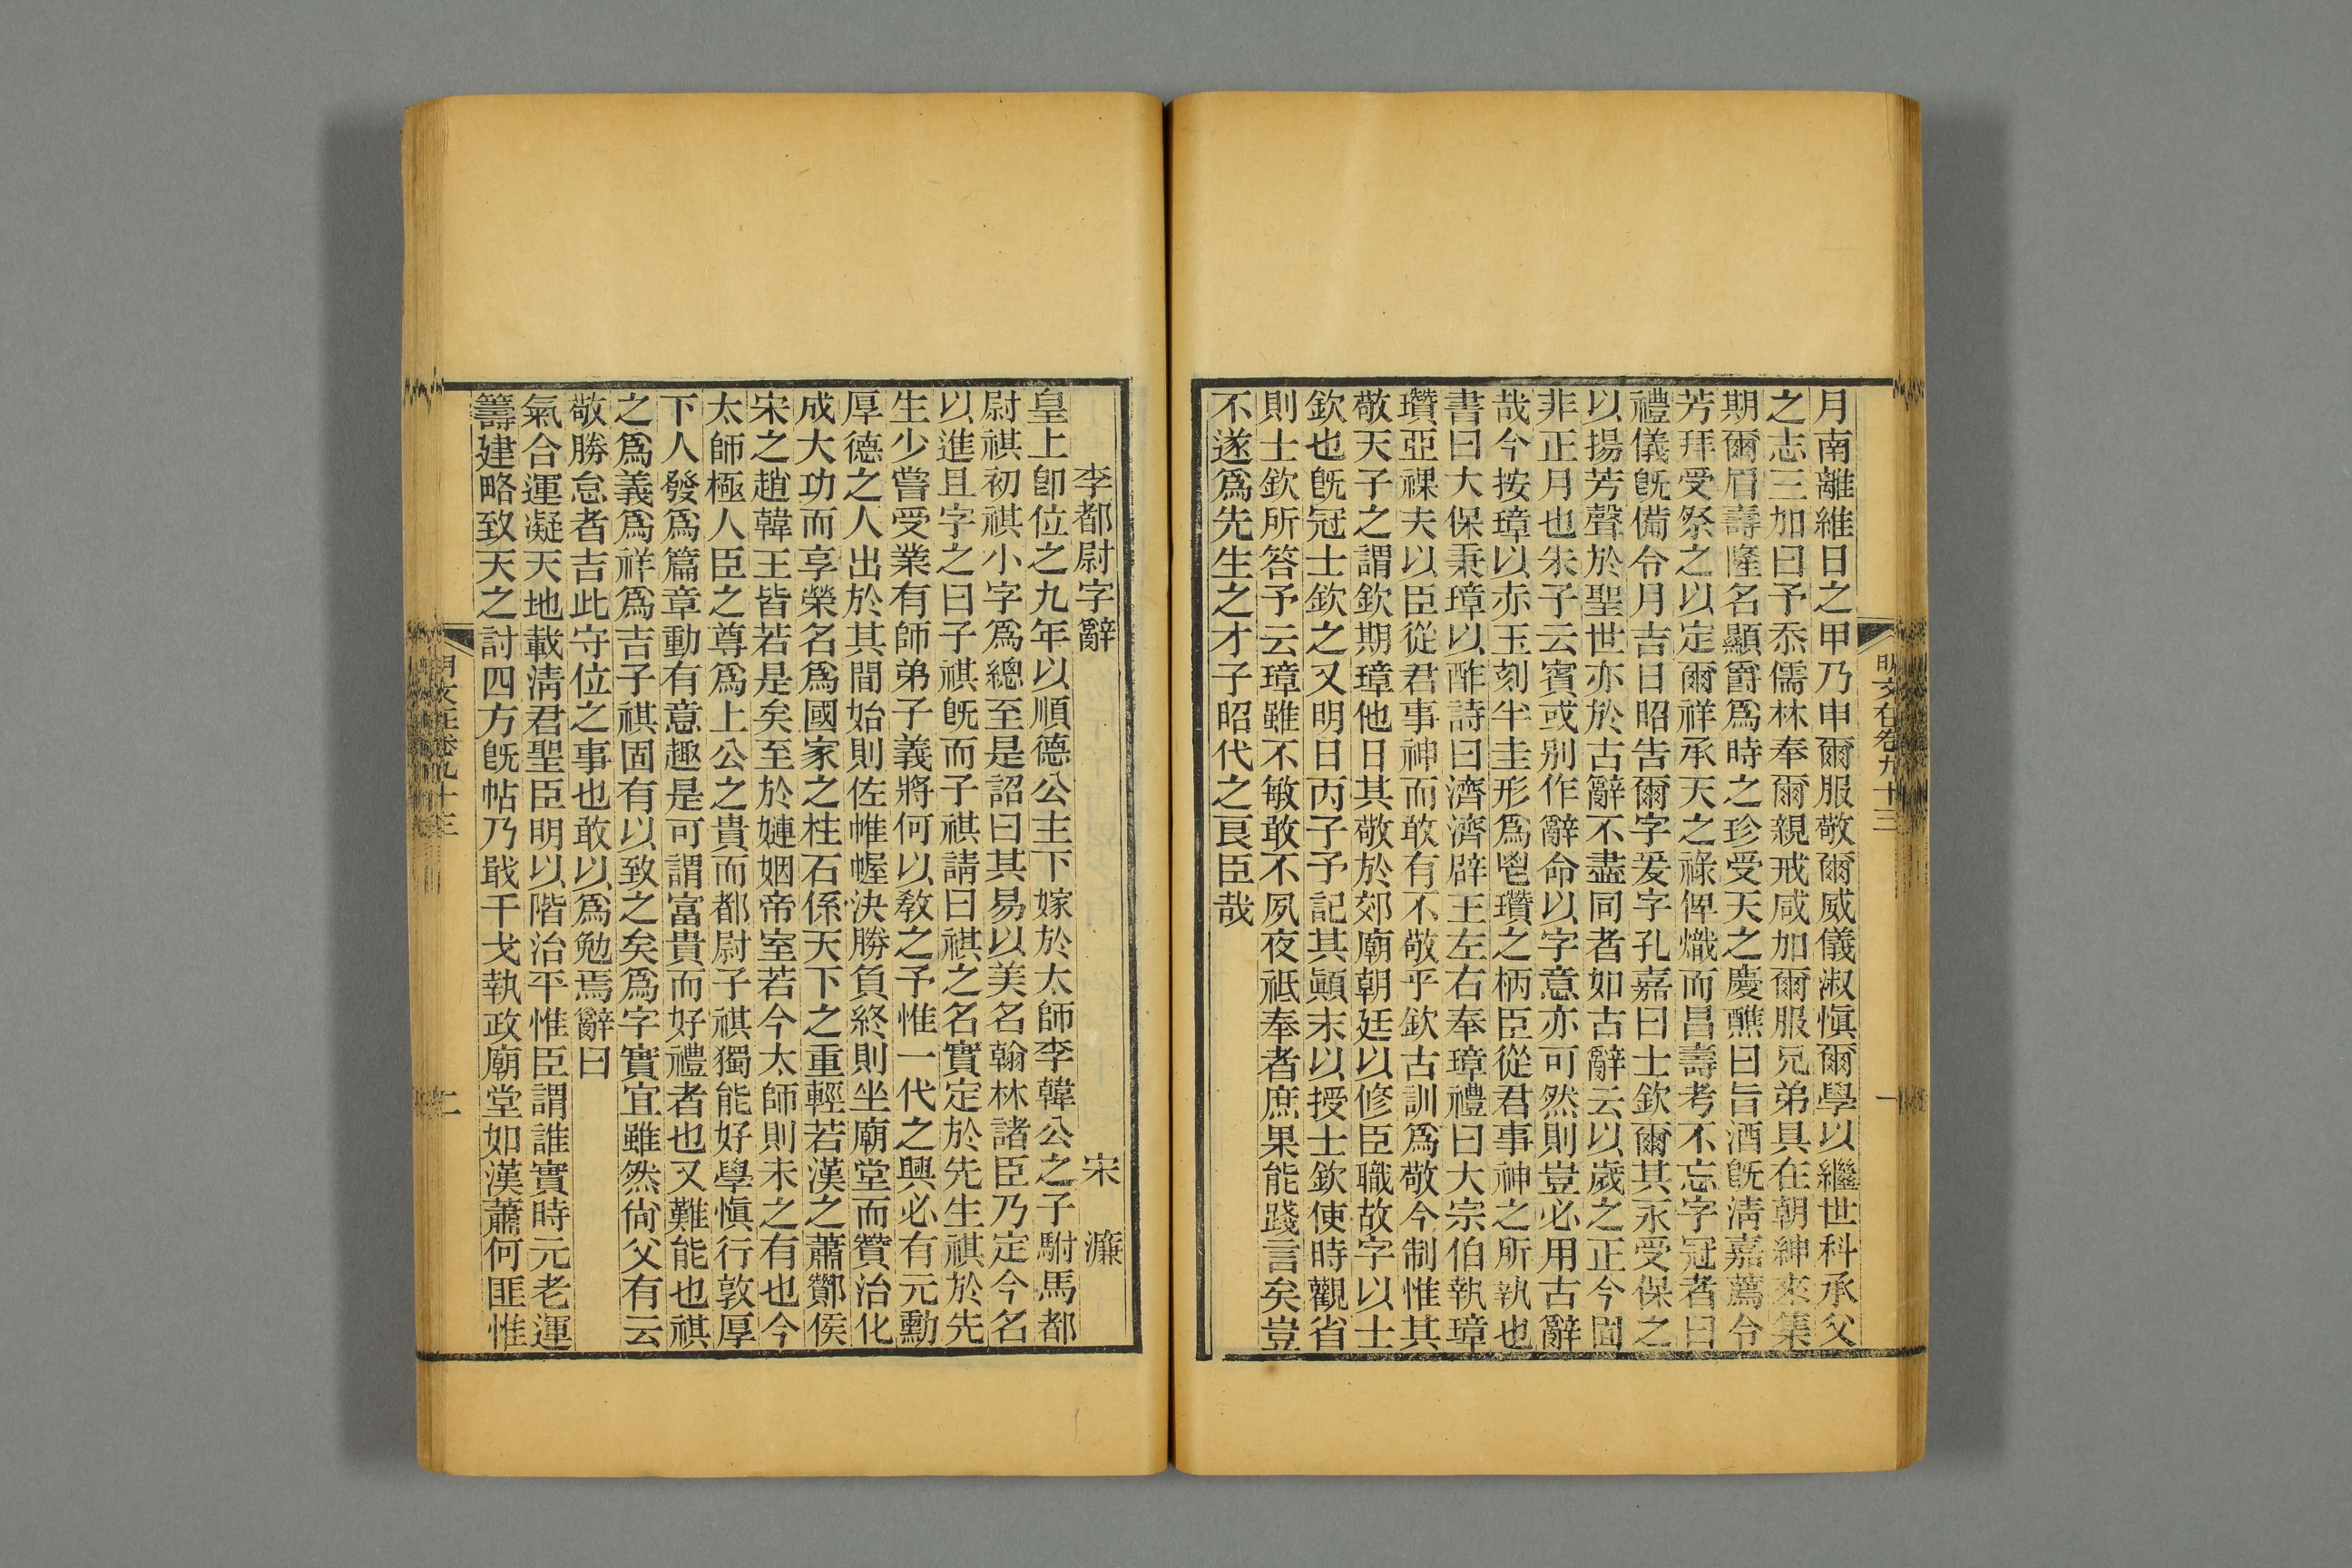 月南離維日之甲乃申爾服敬爾威儀淑愼爾學以繼世科承父
之志三加曰予忝儒林奉爾親戒咸加爾服兄弟具在朝紳來集
期爾眉壽隆名顯爵爲時之珍受天之慶醮曰旨酒旣淸嘉薦令
芳拜受祭之以定爾祥承天之祿俾熾而昌壽考不忘字冠者曰
禮儀旣備令月吉日昭告爾字爰字孔嘉曰士欽爾其永受保之
以揚芳聲於聖世亦於古辭不盡同者如古辭云以歲之正今固
非正月也朱子云賓或別作辭命以字意亦可然則豈必用古辭
哉今按璋以赤玉刻半圭形爲鬯瓚之柄臣從君事神之所執也
書曰大保秉璋以酢詩曰濟濟辟王左右奉璋禮曰大宗伯執璋
瓚亞祼夫以臣從君事神而敢有不敬乎欽古訓爲敬今制惟其
敬天子之謂欽期璋他日其敬於郊廟朝廷以修臣職故字以士
欽也旣冠士欽之又明日丙子予記其顚末以授士欽使時觀省
則士欽所答予云璋雖不敏敢不夙夜祗奉者庶果能踐言矣豈
不遂爲先生之才子昭代之良臣哉
明文在卷九十三
一
李都尉字辭 宋濂
皇上卽位之九年以順德公主下嫁於太師李韓公之子駙馬都
尉祺初祺小字爲總至是詔曰其易以美名翰林諸臣乃定今名
以進且字之曰子祺旣而子祺請曰祺之名實定於先生祺於先
生少嘗受業有師弟子義將何以敎之予惟一代之興必有元勳
厚德之人出於其間始則佐帷幄決勝負終則坐廟堂而贊治化
成大功而享榮名爲國家之柱石係天下之重輕若漢之蕭酇侯
宋之趙韓王皆若是矣至於嬺姻帝室若今太師則未之有也今
太師極人臣之尊爲上公之貴而都尉子祺獨能好學愼行敦厚
下人發爲篇章動有意趣是可謂富貴而好禮者也又難能也祺
之爲義爲祥爲吉子祺固有以致之矣爲字實宜雖然尙父有云
敬勝怠者吉此守位之事也敢以爲勉焉辭曰
氣合運凝天地載淸君聖臣明以階治平惟臣謂誰實時元老運
籌建略致天之討四方旣帖乃戢干戈執政廟堂如漢蕭何匪惟
明文在卷九十三
二